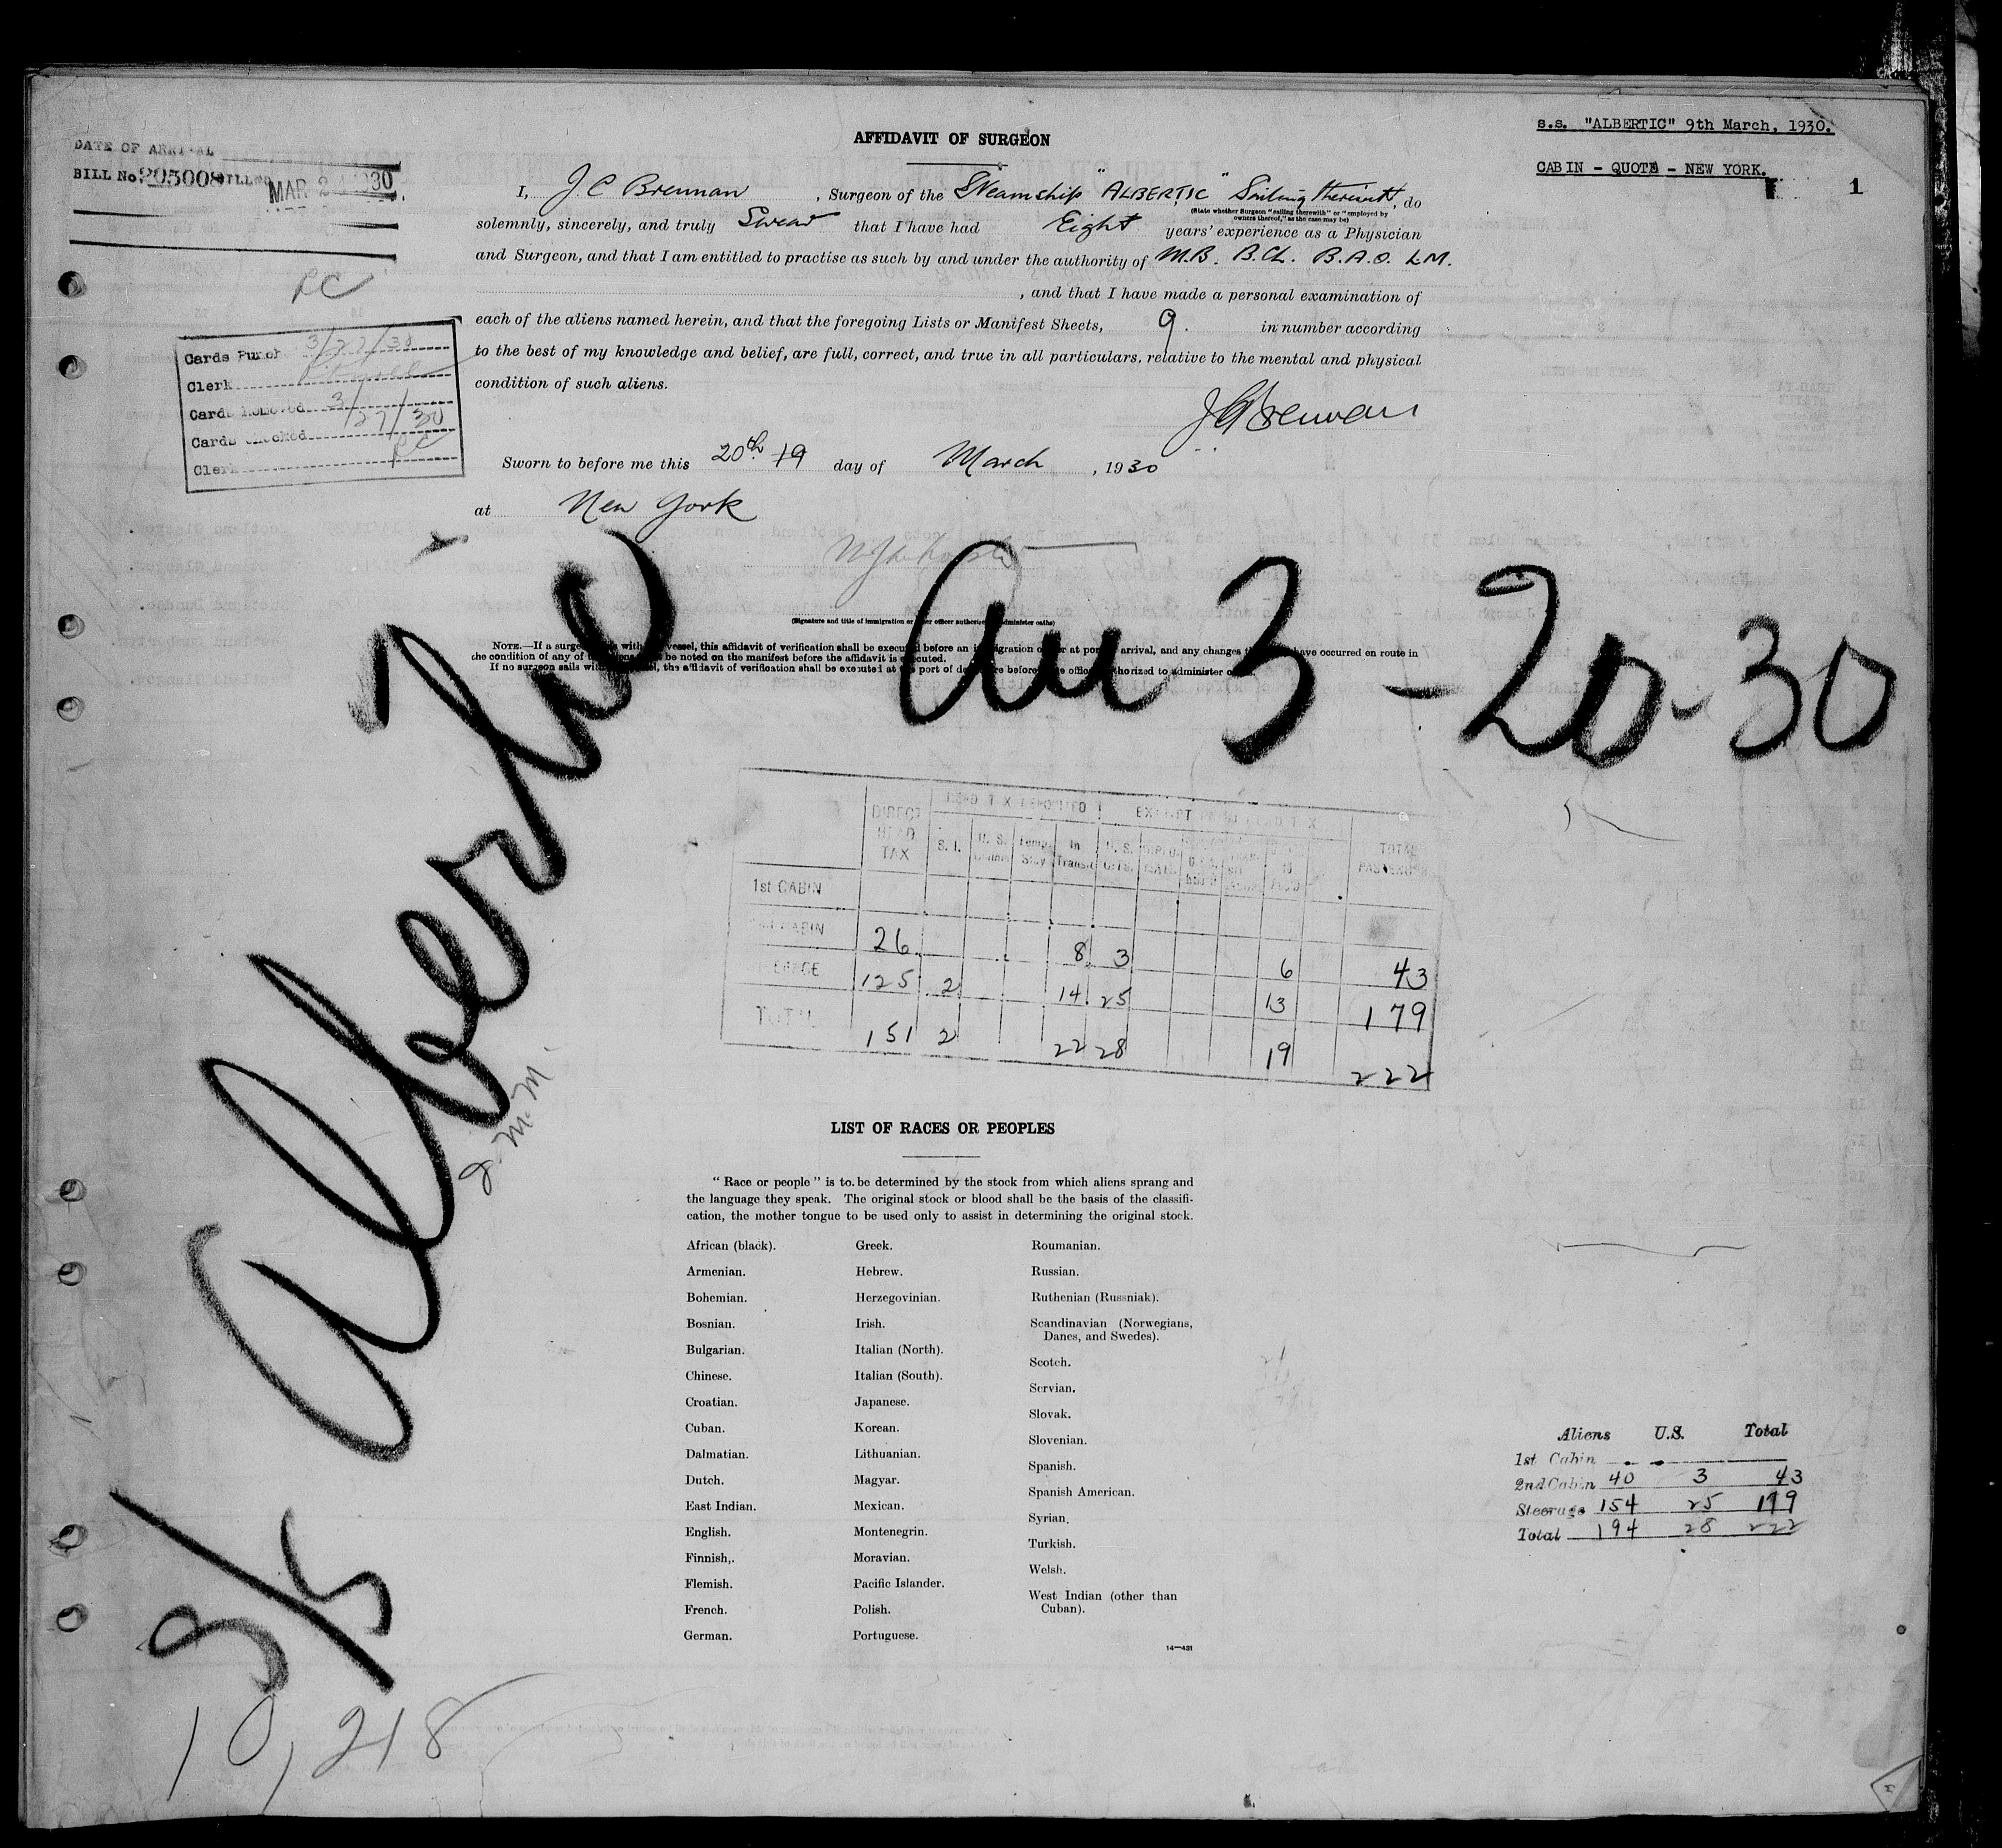 s.s. "ALBERTIC" 9th March, 1930.
CABIN - QUOTA - NEW YORK.
1
DATE OF ARRIVAL
BILL No. 205008 FILLED MAR 24 1930
RC
Cards Punch 3/27/30
Clerk
Cards Removed 3/
Cards Checked 27/30
Clerk RC
AFFIDAVIT OF SURGEON
I, J C Brennan, Surgeon of the Steamship "ALBERTIC" Sailing therewith, do
(State whether Surgeon "sailing therewith" or "employed by
owners thereof," as the case may be)
solemnly, sincerely, and truly Swear that I have had Eight years' experience as a Physician
and Surgeon, and that I am entitled to practise as such by and under the authority of M.B. B.Ch. B.A.O. L.M.
, and that I have made a personal examination of
each of the aliens named herein, and that the foregoing Lists or Manifest Sheets, 9. in number according
to the best of my knowledge and belief, are full, correct, and true in all particulars, relative to the mental and physical
condition of such aliens.
J C Brennan
Sworn to before me this 20th 19 day of March, 1930
at New York
(Signature and title of immigration or other officer authorized to administer oaths)
NOTE.—If a surgeon sails with the vessel, this affidavit of verification shall be executed before an immigration officer at port of arrival, and any changes that have occurred en route in
the condition of any of the aliens shall be noted on the manifest before the affidavit is executed.
If no surgeon sails with the vessel, the affidavit of verification shall be executed at the port of departure before the officer authorized to administer oaths
Arr 3-20-30
S/S Albertic
J.M.M.
10,218
DIRECT HEAD TAX HEAD TAX DEPOSITED EXEMPT FROM HEAD TAX TOTAL PASSENGERS
S. I. U. S. Temp. Stay In Transit U. S. CITS.
1st CABIN
2nd CABIN 26 8 3 6 43
STEERAGE 125 2 14 25 13 179
TOTAL 151 2 22 28 19 222
LIST OF RACES OR PEOPLES
" Race or people " is to be determined by the stock from which aliens sprang and
the language they speak. The original stock or blood shall be the basis of the classifi-
cation, the mother tongue to be used only to assist in determining the original stock.
African (black).
Armenian.
Bohemian.
Bosnian.
Bulgarian.
Chinese.
Croatian.
Cuban.
Dalmatian.
Dutch.
East Indian.
English.
Finnish,.
Flemish.
French.
German.
Greek.
Hebrew.
Herzegovinian.
Irish.
Italian (North).
Italian (South).
Japanese.
Korean.
Lithuanian.
Magyar.
Mexican.
Montenegrin.
Moravian.
Pacific Islander.
Polish.
Portuguese.
Roumanian.
Russian.
Ruthenian (Russniak).
Scandinavian (Norwegians,
Danes, and Swedes).
Scotch.
Servian.
Slovak.
Slovenian.
Spanish.
Spanish American.
Syrian.
Turkish.
Welsh.
West Indian (other than
Cuban).
14—431
Aliens U.S. Total
1st Cabin
2nd Cabin 40 3 43
Steerage 154 25 179
Total 194 28 222